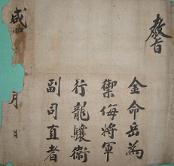 敎旨
金命岳爲
禦侮將軍
行龍驤衛
副司直者
咸
月 日